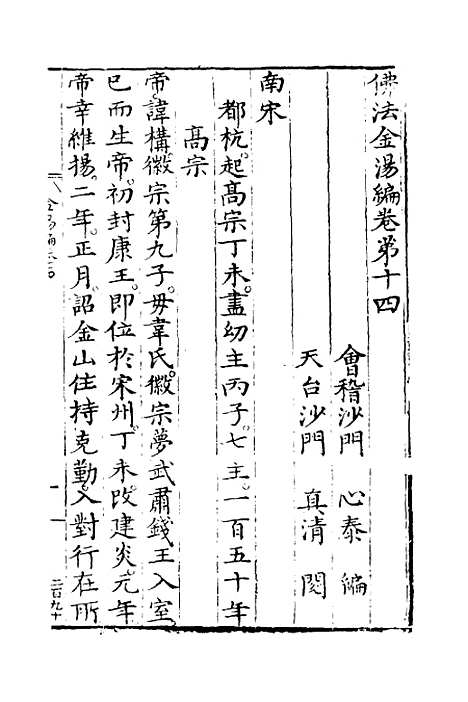 佛法金湯編卷第十四
會稽沙門 心泰 編
天台沙門 真清 閱
南宋
都杭。起高宗丁未。盡幼主丙子。七主。一百五十年
高宗
帝諱構徽宗第九子。毋韋氏。徽宗夢武肅錢王入室。
巳而生帝。初封康王。即位於宋州。丁未改建炎。元年
帝幸維揚。二年。正月。詔金山住持克勤。入對行在所